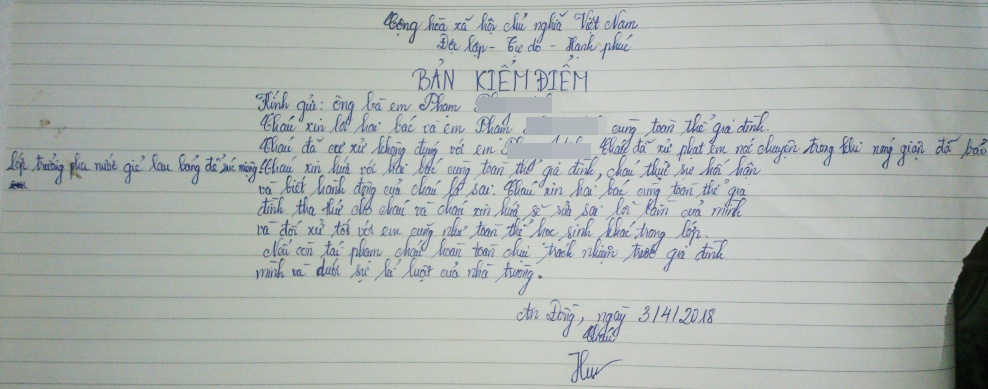 Cộng hòa xã hội chủ nghĩa Việt Nam
Độc lập - Tự do - Hạnh phúc
BẢN KIỂM ĐIỂM
Kính gửi: ông bà em Phạm
Cháu xin lỗi hai bác và em Phạm cùng toàn thể gia đình.
Cháu đã cư xử không đúng với em Cháu đã xử phạt em nói chuyện trong khi nóng giận đã bảo
lớp trưởng pha nước giẻ lau bảng để súc miệng. Cháu xin hứa với hai bác cùng toàn thể gia đình, cháu thực sự hối hận
và biết hành động của cháu là sai. Cháu xin hai bác cùng toàn thể gia
đình tha thứ cho cháu và cháu xin hứa sẽ sửa sai lỗi lầm của mình
và đối xử tốt với em cũng như toàn thể học sinh khác trong lớp.
Nếu còn tái phạm cháu hoàn toàn chịu trách nhiệm trước gia đình
mình và dưới sự kỉ luật của nhà trường.
An Đồng, ngày 3/4/2018
Cháu